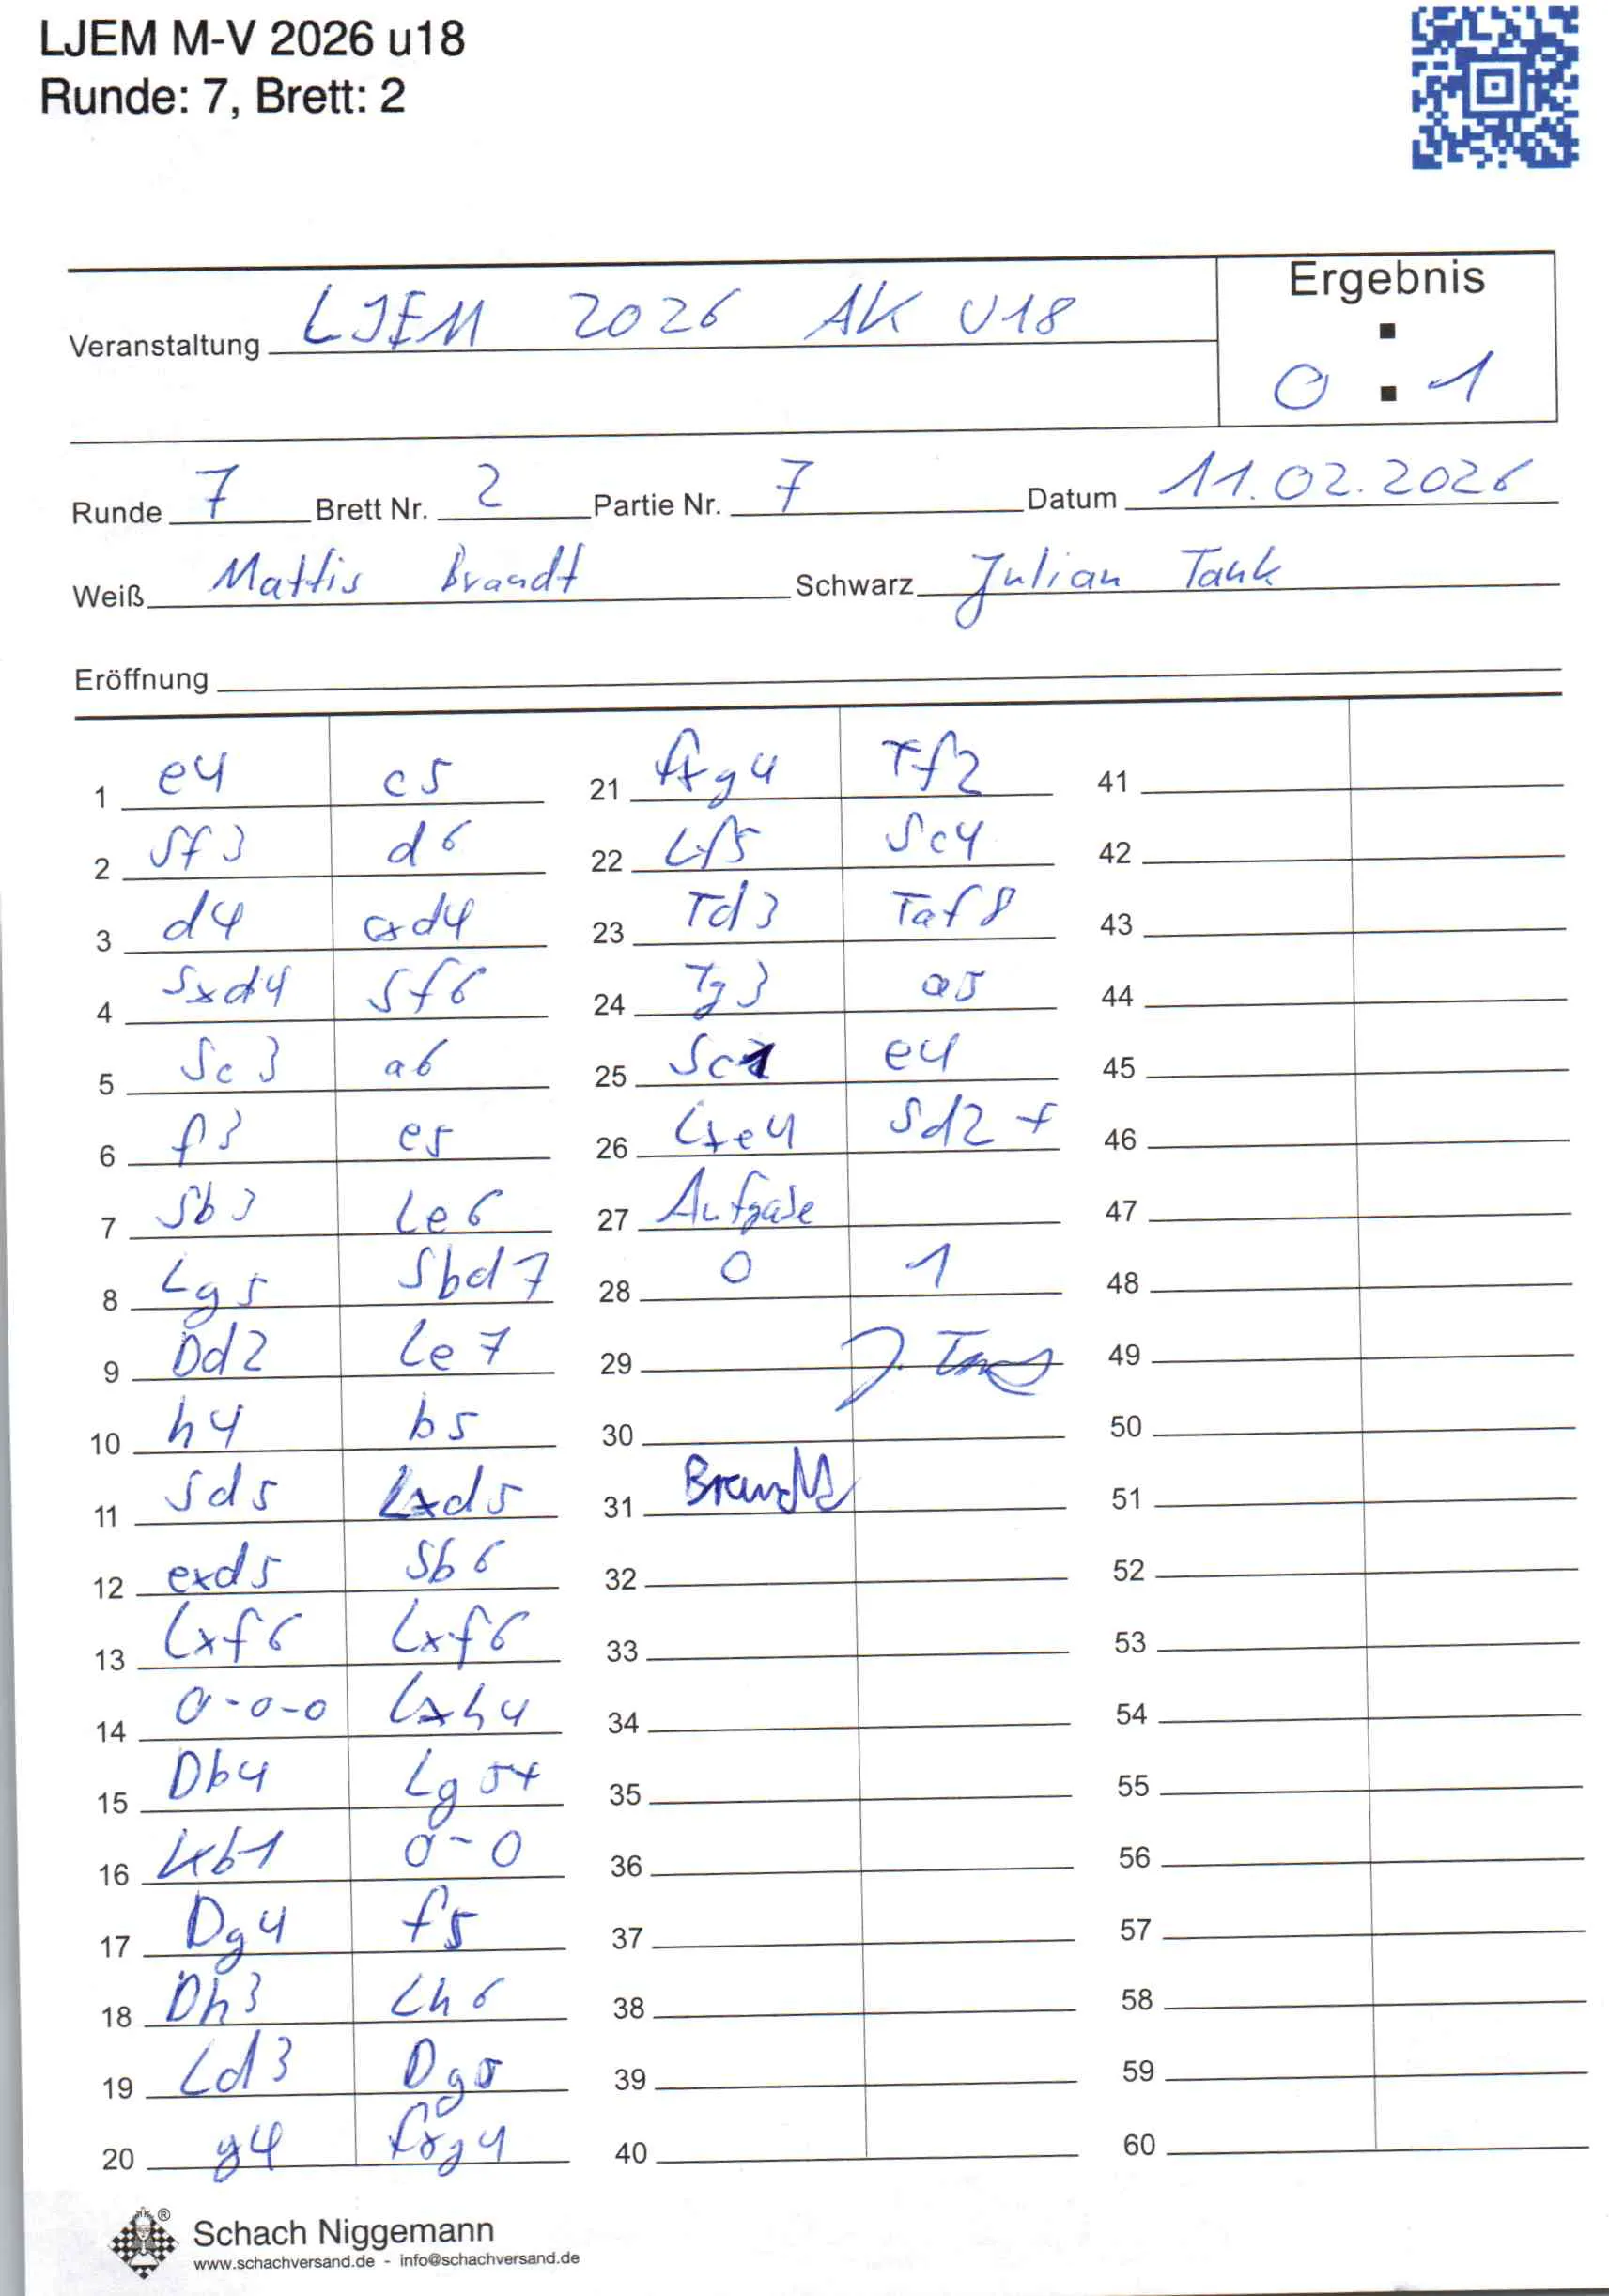 LJEM M-V 2026 u18
Runde: 7, Brett: 2
Ergebnis
:
Veranstaltung LJEM 2026 AK U18
0 : 1
Runde 7 Brett Nr. 2 Partie Nr. 7 Datum 11.02.2026
Weiß Mattis Brandt Schwarz Julian Tank
Eröffnung
1 e4 c5
2 Sf3 d6
3 d4 cxd4
4 Sxd4 Sf6
5 Sc3 a6
6 f3 e5
7 Sb3 Le6
8 Lg5 Sbd7
9 Dd2 Le7
10 h4 b5
11 Sd5 Lxd5
12 exd5 Sb6
13 Lxf6 Lxf6
14 0-0-0 Lxh4
15 Db4 Lg5+
16 Kb1 0-0
17 Dg4 f5
18 Dh3 Lh6
19 Ld3 Dg5
20 g4 fxg4
21 fxg4 Tf2
22 Lf5 Sc4
23 Td3 Taf8
24 Tg3 a5
25 Sc1 e4
26 Lxe4 Sd2+
27 Aufgabe
28 0 1
29 J. Tank
30
31 Brandt
32
33
34
35
36
37
38
39
40
41
42
43
44
45
46
47
48
49
50
51
52
53
54
55
56
57
58
59
60
®
Schach Niggemann
www.schachversand.de - info@schachversand.de